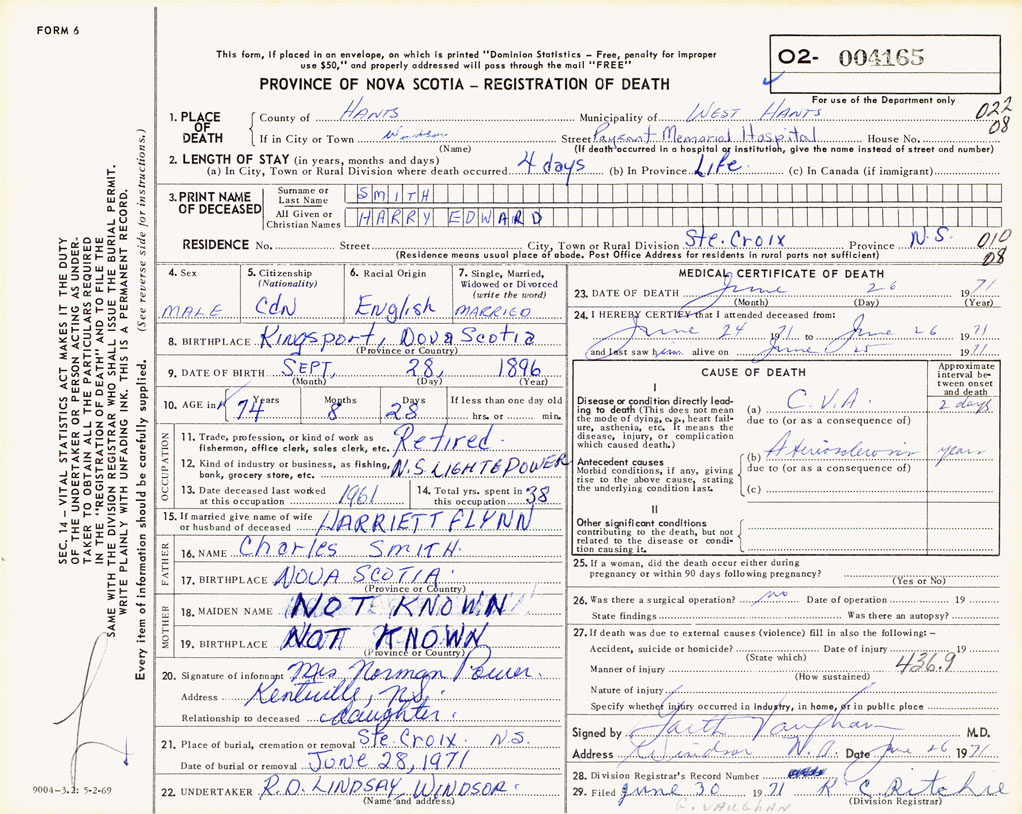 FORM 6
This form, if placed in an envelope, on which is printed "Dominion Statistics – Free, penalty for improper
use $50," and properly addressed will pass through the mail "FREE"
02- 004165
PROVINCE OF NOVA SCOTIA – REGISTRATION OF DEATH
For use of the Department only
1. PLACE OF DEATH County of HANTS Municipality of WEST HANTS 022
If in City or Town Windsor Street Payzant Memorial Hospital House No. 08
(Name) (If death occurred in a hospital or institution, give the name instead of street and number)
2. LENGTH OF STAY (in years, months and days)
(a) In City, Town or Rural Division where death occurred 4 days (b) In Province Life (c) In Canada (if immigrant)
3. PRINT NAME OF DECEASED Surname or Last Name SMITH
All Given or Christian Names HARRY EDWARD
RESIDENCE No. Street City, Town or Rural Division Ste. Croix Province N.S. 010
(Residence means usual place of abode. Post Office Address for residents in rural parts not sufficient) 08
4. Sex 5. Citizenship (Nationality) 6. Racial Origin 7. Single, Married, Widowed or Divorced (write the word)
MALE Cdn English MARRIED
8. BIRTHPLACE Kingsport, Nova Scotia
(Province or Country)
9. DATE OF BIRTH SEPT, 28, 1896
(Month) (Day) (Year)
10. AGE in Years Months Days If less than one day old
74 8 28 hrs. or min.
OCCUPATION
11. Trade, profession, or kind of work as fisherman, office clerk, sales clerk, etc. Retired
12. Kind of industry or business, as fishing, bank, grocery store, etc. N.S. LIGHT & POWER
13. Date deceased last worked at this occupation 1961 14. Total yrs. spent in this occupation 38
15. If married give name of wife or husband of deceased HARRIETT FLYNN
FATHER
16. NAME Charles SMITH
17. BIRTHPLACE NOVA SCOTIA
(Province or Country)
MOTHER
18. MAIDEN NAME NOT KNOWN
19. BIRTHPLACE NOT KNOWN
(Province or Country)
20. Signature of informant Mrs. Norman Power.
Address Kentville, N.S.
Relationship to deceased daughter.
21. Place of burial, cremation or removal Ste. Croix. N.S.
Date of burial or removal JUNE 28, 1971
22. UNDERTAKER R.D. LINDSAY, WINDSOR.
(Name and address)
MEDICAL CERTIFICATE OF DEATH
23. DATE OF DEATH June 26 1971
(Month) (Day) (Year)
24. I HEREBY CERTIFY that I attended deceased from:
June 24 1971 to June 26 1971
and last saw him alive on June 25 1971
CAUSE OF DEATH
Approximate interval between onset and death
I
Disease or condition directly leading to death (This does not mean the mode of dying, e.g., heart failure, asthenia, etc. It means the disease, injury, or complication which caused death.)
(a) C.V.A. 2 days
due to (or as a consequence of)
Antecedent causes
Morbid conditions, if any, giving rise to the above cause, stating the underlying condition last.
(b) years
due to (or as a consequence of)
(c)
II
Other significant conditions contributing to the death, but not related to the disease or condition causing it.
25. If a woman, did the death occur either during
pregnancy or within 90 days following pregnancy?
(Yes or No)
26. Was there a surgical operation? no Date of operation 19
State findings Was there an autopsy?
27. If death was due to external causes (violence) fill in also the following: –
Accident, suicide or homicide? Date of injury 19
(State which)
Manner of injury 436.9
(How sustained)
Nature of injury
Specify whether injury occurred in industry, in home, or in public place
Signed by Garth Vaughan M.D.
Address Windsor N.S. Date June 26 1971
28. Division Registrar's Record Number
29. Filed June 30 1971 K C Ritchie
(Division Registrar)
G. VAUGHAN
SEC. 14 – VITAL STATISTICS ACT MAKES IT THE DUTY
OF THE UNDERTAKER OR PERSON ACTING AS UNDER-
TAKER TO OBTAIN ALL THE PARTICULARS REQUIRED
IN THE "REGISTRATION OF DEATH" AND TO FILE THE
SAME WITH THE DIVISION REGISTRAR WHO SHALL ISSUE THE BURIAL PERMIT.
WRITE PLAINLY WITH UNFADING INK. THIS IS A PERMANENT RECORD.
Every item of information should be carefully supplied. (See reverse side for instructions.)
9004-3.2: 5-2-69